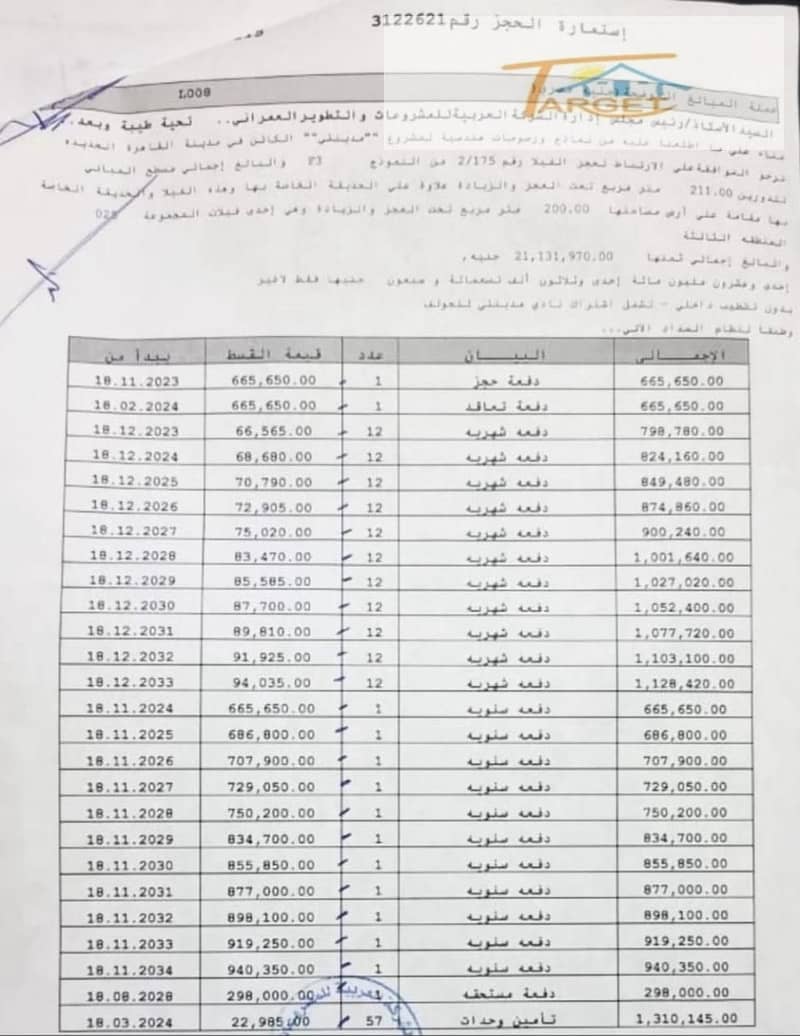 إستمارة الحجز رقم 3122621
TARGET
L008
جملة المبالغ
السيد الأستاذ/رئيس مجلس إدارة الشركة العربية للمشروعات والتطوير العمراني.. تحية طيبة وبعد.
بناء على ما اطلعنا عليه من نماذج ورسومات هندسية لمشروع ""مدينتي"" الكائن في مدينة القاهرة الجديدة
نرجو الموافقة على الارتباط لحجز الفيلا رقم 2/175 من النموذج F3 والبالغ إجمالي مسطح المباني
للدورين 211.00 متر مربع تحت العجز والزيادة علاوة على الحديقة الخاصة بها وهذه الفيلا والحديقة الخاصة
بها مقامة على أرض مساحتها 200.00 متر مربع تحت العجز والزيادة وهي إحدى فيلات المجموعة 025
المنطقة الثالثة
والبالغ إجمالي ثمنها 21,131,970.00 جنيه,
إحدى وعشرون مليون مائة إحدى وثلاثون ألف تسعمائة و سبعون جنيها فقط لاغير
بدون تشطيب داخلي - تشمل اشتراك نادي مدينتي للجولف
وطبقا لنظام السداد الآتي...
الإجمالى البيان عدد قيمة القسط يبدأ من
665,650.00 دفعة حجز 1 665,650.00 18.11.2023
665,650.00 دفعة تعاقد 1 665,650.00 18.02.2024
798,780.00 دفعه شهريه 12 66,565.00 18.12.2023
824,160.00 دفعه شهريه 12 68,680.00 18.12.2024
849,480.00 دفعه شهريه 12 70,790.00 18.12.2025
874,860.00 دفعه شهريه 12 72,905.00 18.12.2026
900,240.00 دفعه شهريه 12 75,020.00 18.12.2027
1,001,640.00 دفعه شهريه 12 83,470.00 18.12.2028
1,027,020.00 دفعه شهريه 12 85,585.00 18.12.2029
1,052,400.00 دفعه شهريه 12 87,700.00 18.12.2030
1,077,720.00 دفعه شهريه 12 89,810.00 18.12.2031
1,103,100.00 دفعه شهريه 12 91,925.00 18.12.2032
1,128,420.00 دفعه شهريه 12 94,035.00 18.12.2033
665,650.00 دفعه سنويه 1 665,650.00 18.11.2024
686,800.00 دفعه سنويه 1 686,800.00 18.11.2025
707,900.00 دفعه سنويه 1 707,900.00 18.11.2026
729,050.00 دفعه سنويه 1 729,050.00 18.11.2027
750,200.00 دفعه سنويه 1 750,200.00 18.11.2028
834,700.00 دفعه سنويه 1 834,700.00 18.11.2029
855,850.00 دفعه سنويه 1 855,850.00 18.11.2030
877,000.00 دفعه سنويه 1 877,000.00 18.11.2031
898,100.00 دفعه سنويه 1 898,100.00 18.11.2032
919,250.00 دفعه سنويه 1 919,250.00 18.11.2033
940,350.00 دفعه سنويه 1 940,350.00 18.11.2034
298,000.00 دفعة مستحقه 1 298,000.00 18.08.2028
1,310,145.00 تأمين وحدات 57 22,985.00 18.03.2024